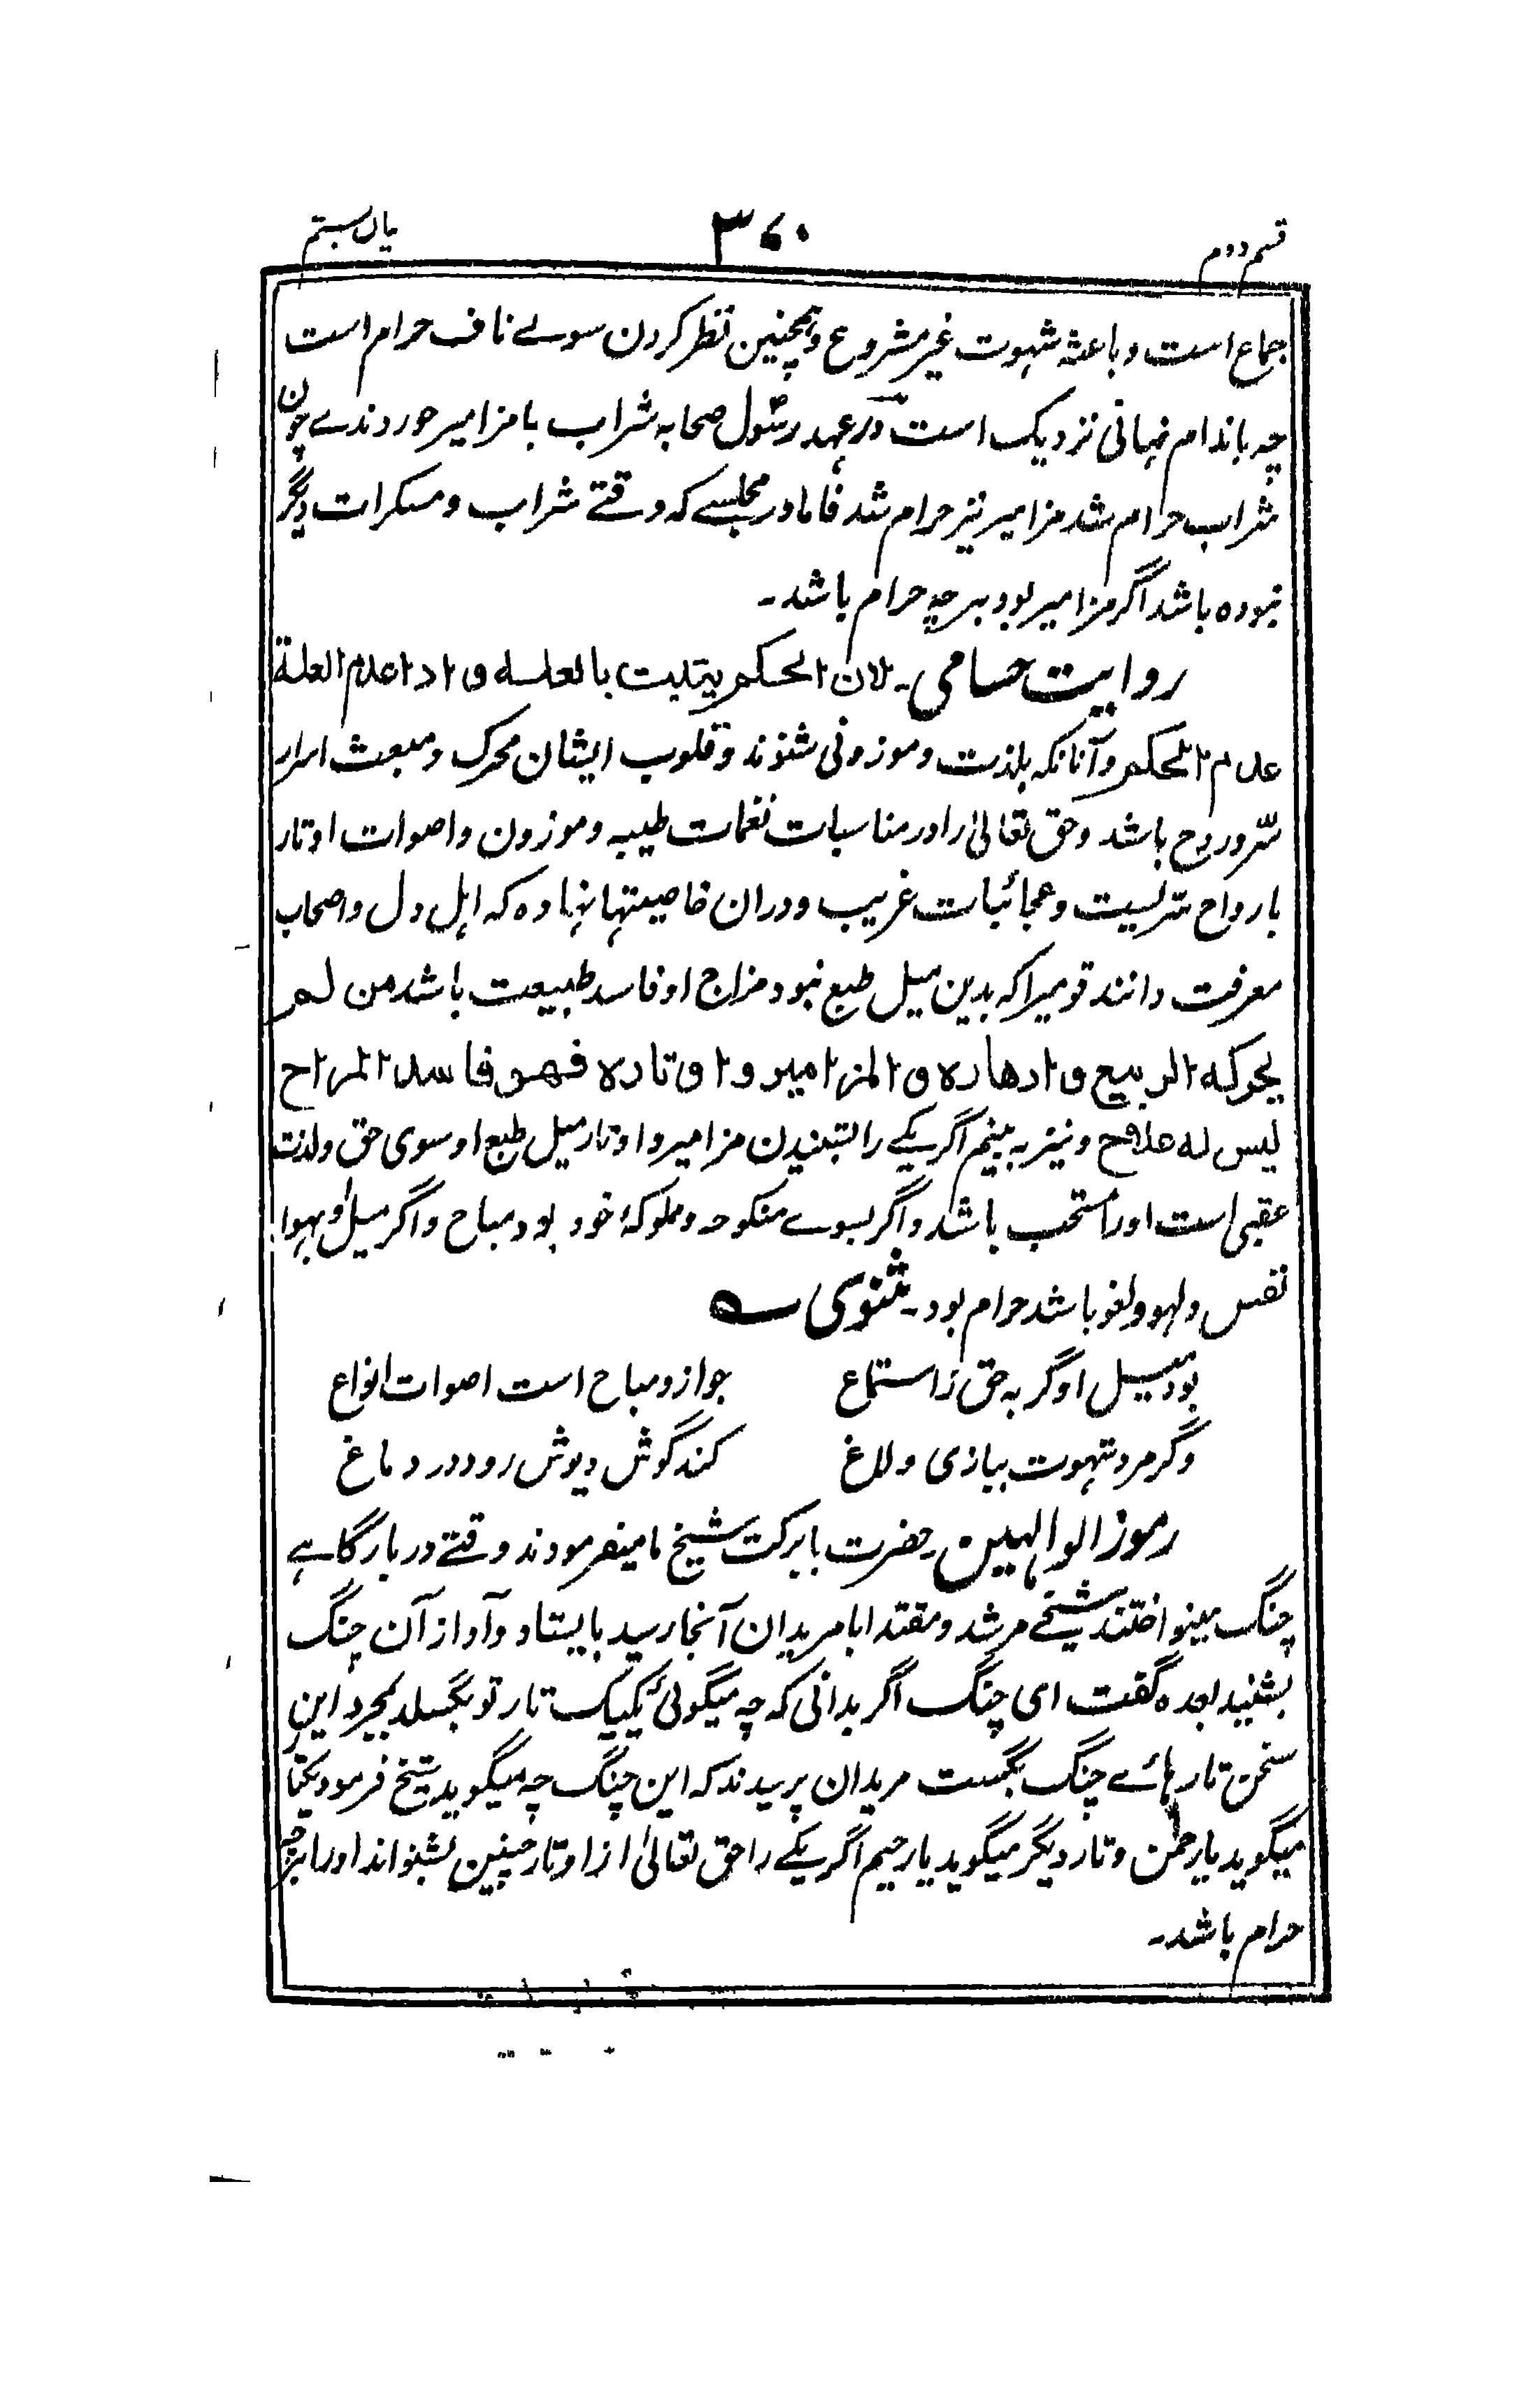 قسم دوم ۳۷۰ بیان بستم
جماع است و باعثه شهوت غیر مشروع و همچنین نظر کردن سوے ناف حرام است
چه باندام نهانی نزدیک است در عهد رسول صحابه شراب با مزامیر خوردندے چون
شراب حرام شد مزامیر نیز حرام شد فاما در مجلسے که وقتے شراب و مسکرات دیگر
نبوده باشد اگر مزامیر بود برچه حرام باشد۔
روایت حسامی۔ لان الحکم یثبت بالعلـه و اذا عدم العلة
عدم الحکم و آنانکه بلذت و موزونی شنوند و قلوب ایشان محرک و مبعث اسرار
سر و روح باشد و حق تعالیٰ را در مناسبات نغمات طیبه و موزون و اصوات اوتار
بارواح سریست و عجائبات غریب و دران خاصیتها نهاده که اہل دل و اصحاب
معرفت دانند قومیرا که بدین میل طبع نبود مزاج او فاسد طبیعت باشد من لم
یحرکه الربیع و ازهاره و المزامیر و اوتاره فهو فاسد المزاح
لیس له علاج و نیز به بینم اگر یکے را بشنیدن مزامیر و اوتار میل طبع او سوی حق و لذت
عقبی است او را مستحب باشد و اگر بسوے منکوحه و مملوکۀ خود بود مباح و اگر میل او بهوا
نفس و لهو و لغو باشد حرام بود۔ مثنوی ؎
بود میل او گر به حق ز استماع جواز و مباح است اصوات انواع
وگر مرد شهوت ببازی و لاغ کند گوش دیوش رود در دماغ
رموز الوالهین۔ حضرت بابرکت شیخ ما میفرمودند وقتے در بارگاہے
چنگ مینواختند شیخے مرشد و مقتدا با مریدان آنجا رسید بایستاد و آواز آن چنگ
بشنید بعده گفت ای چنگ اگر بدانی که چه میگوئی یکیک تار تو بگسلد بمجرد این
سخن تارہائے چنگ بگسست مریدان پرسیدند که این چنگ چه میگوید شیخ فرمود یکتا
میگوید یا رحمٰن و تار دیگر میگوید یا رحیم اگر یکے را حق تعالیٰ از اوتار چنین بشنواند او را برچه
حرام باشد۔